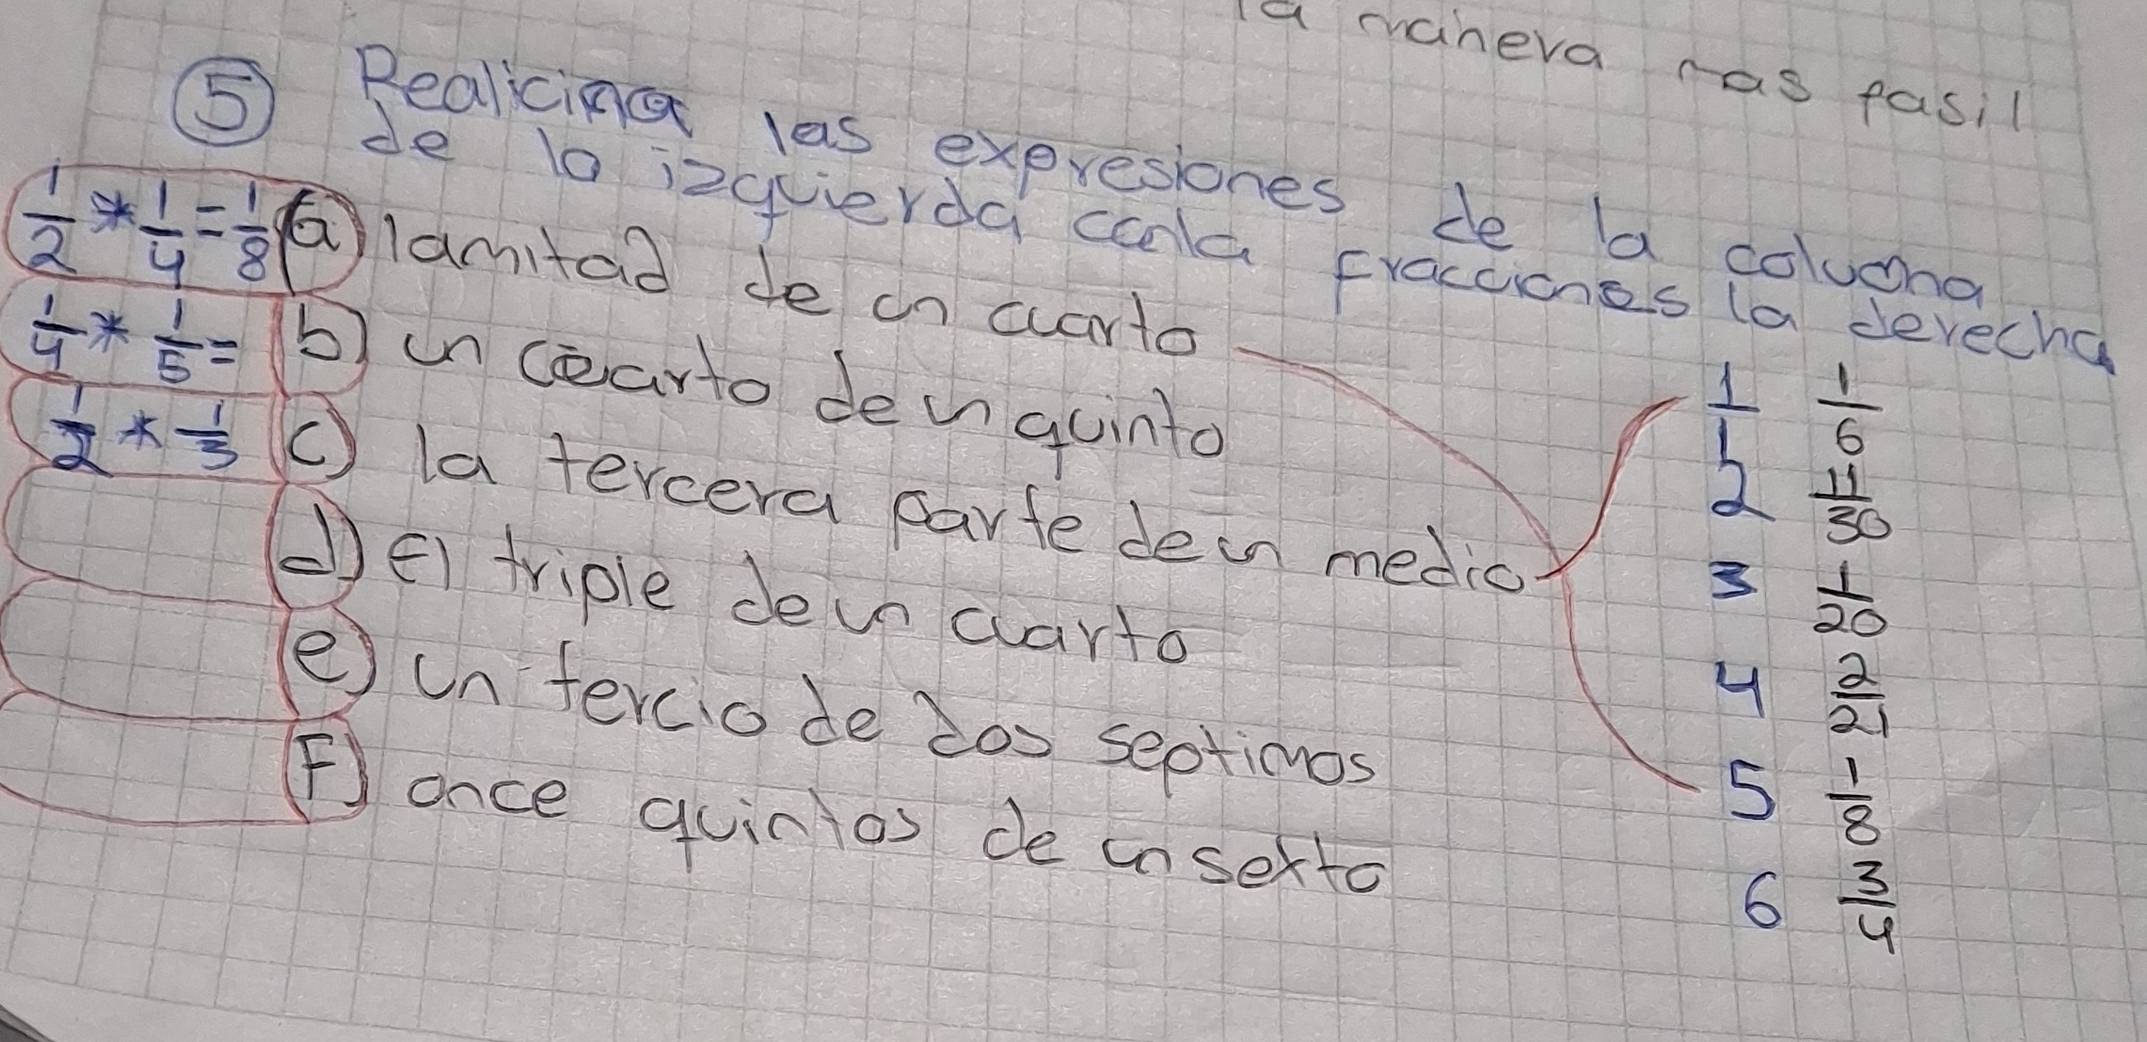 la manera mas fasil
5 Realiciona las expresiones de la coluona
de lo izquierda conla fracciones la derecha
1/2 * 1/4 = 1/8 a) lamitad de un cuarto
1/4 * 1/5 = b) un cuarto de un quinto
1/2 * 1/3 c) la tercera parte de un medio
d) El triple de un cuarto
e) un tercio de dos septimos
F) once quintos de un sexto
1 1/6
2 11/30
3 1/20
4 2/21
5 1/8
6 3/4